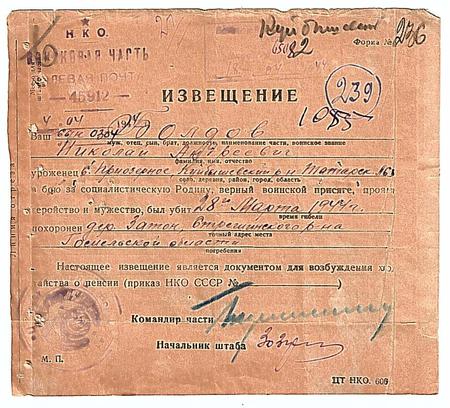 НКО.
Куйбышевск
Форма №
236
ВОЙСКОВАЯ ЧАСТЬ
ПОЛЕВАЯ ПОЧТА
45912
ИЗВЕЩЕНИЕ
239
1085
Ваш сын Болдов
муж, отец, сын, брат, должность, наименование части, воинское звание
Николай Андреевич
фамилия, имя, отчество
уроженец с. Приозерное, Куйбышевский р-н
село, деревня, район, город, область
в бою за социалистическую Родину, верный воинской присяге, прояв
геройство и мужество, был убит 28го Марта 1944г.
время гибели
похоронен дер. Затон, Стрешинского р-на
точный адрес места
Гомельской области
погребения
Настоящее извещение является документом для возбуждения хо
тайства о пенсии (приказ НКО СССР №
Командир части
Начальник штаба
М. П.
ЦТ НКО. 600